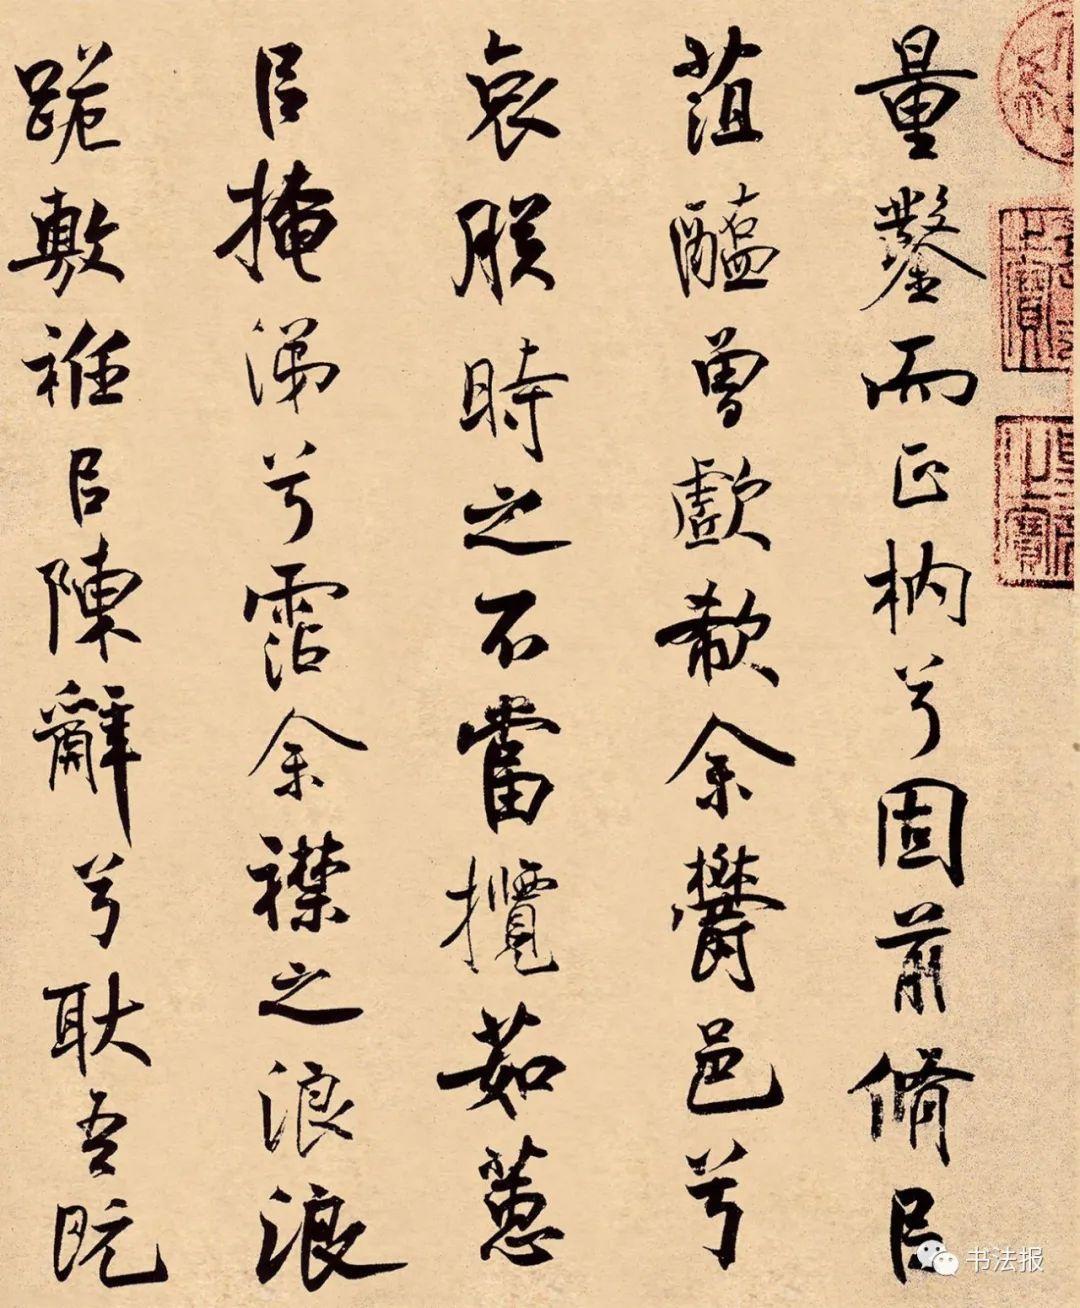 量鑿而正枘兮固前脩㠯
菹醢曾歔欷余鬱邑兮
哀朕時之不當攬茹蕙
㠯掩涕兮霑余襟之浪浪
跪敷衽㠯陳辭兮耿吾既
书法报